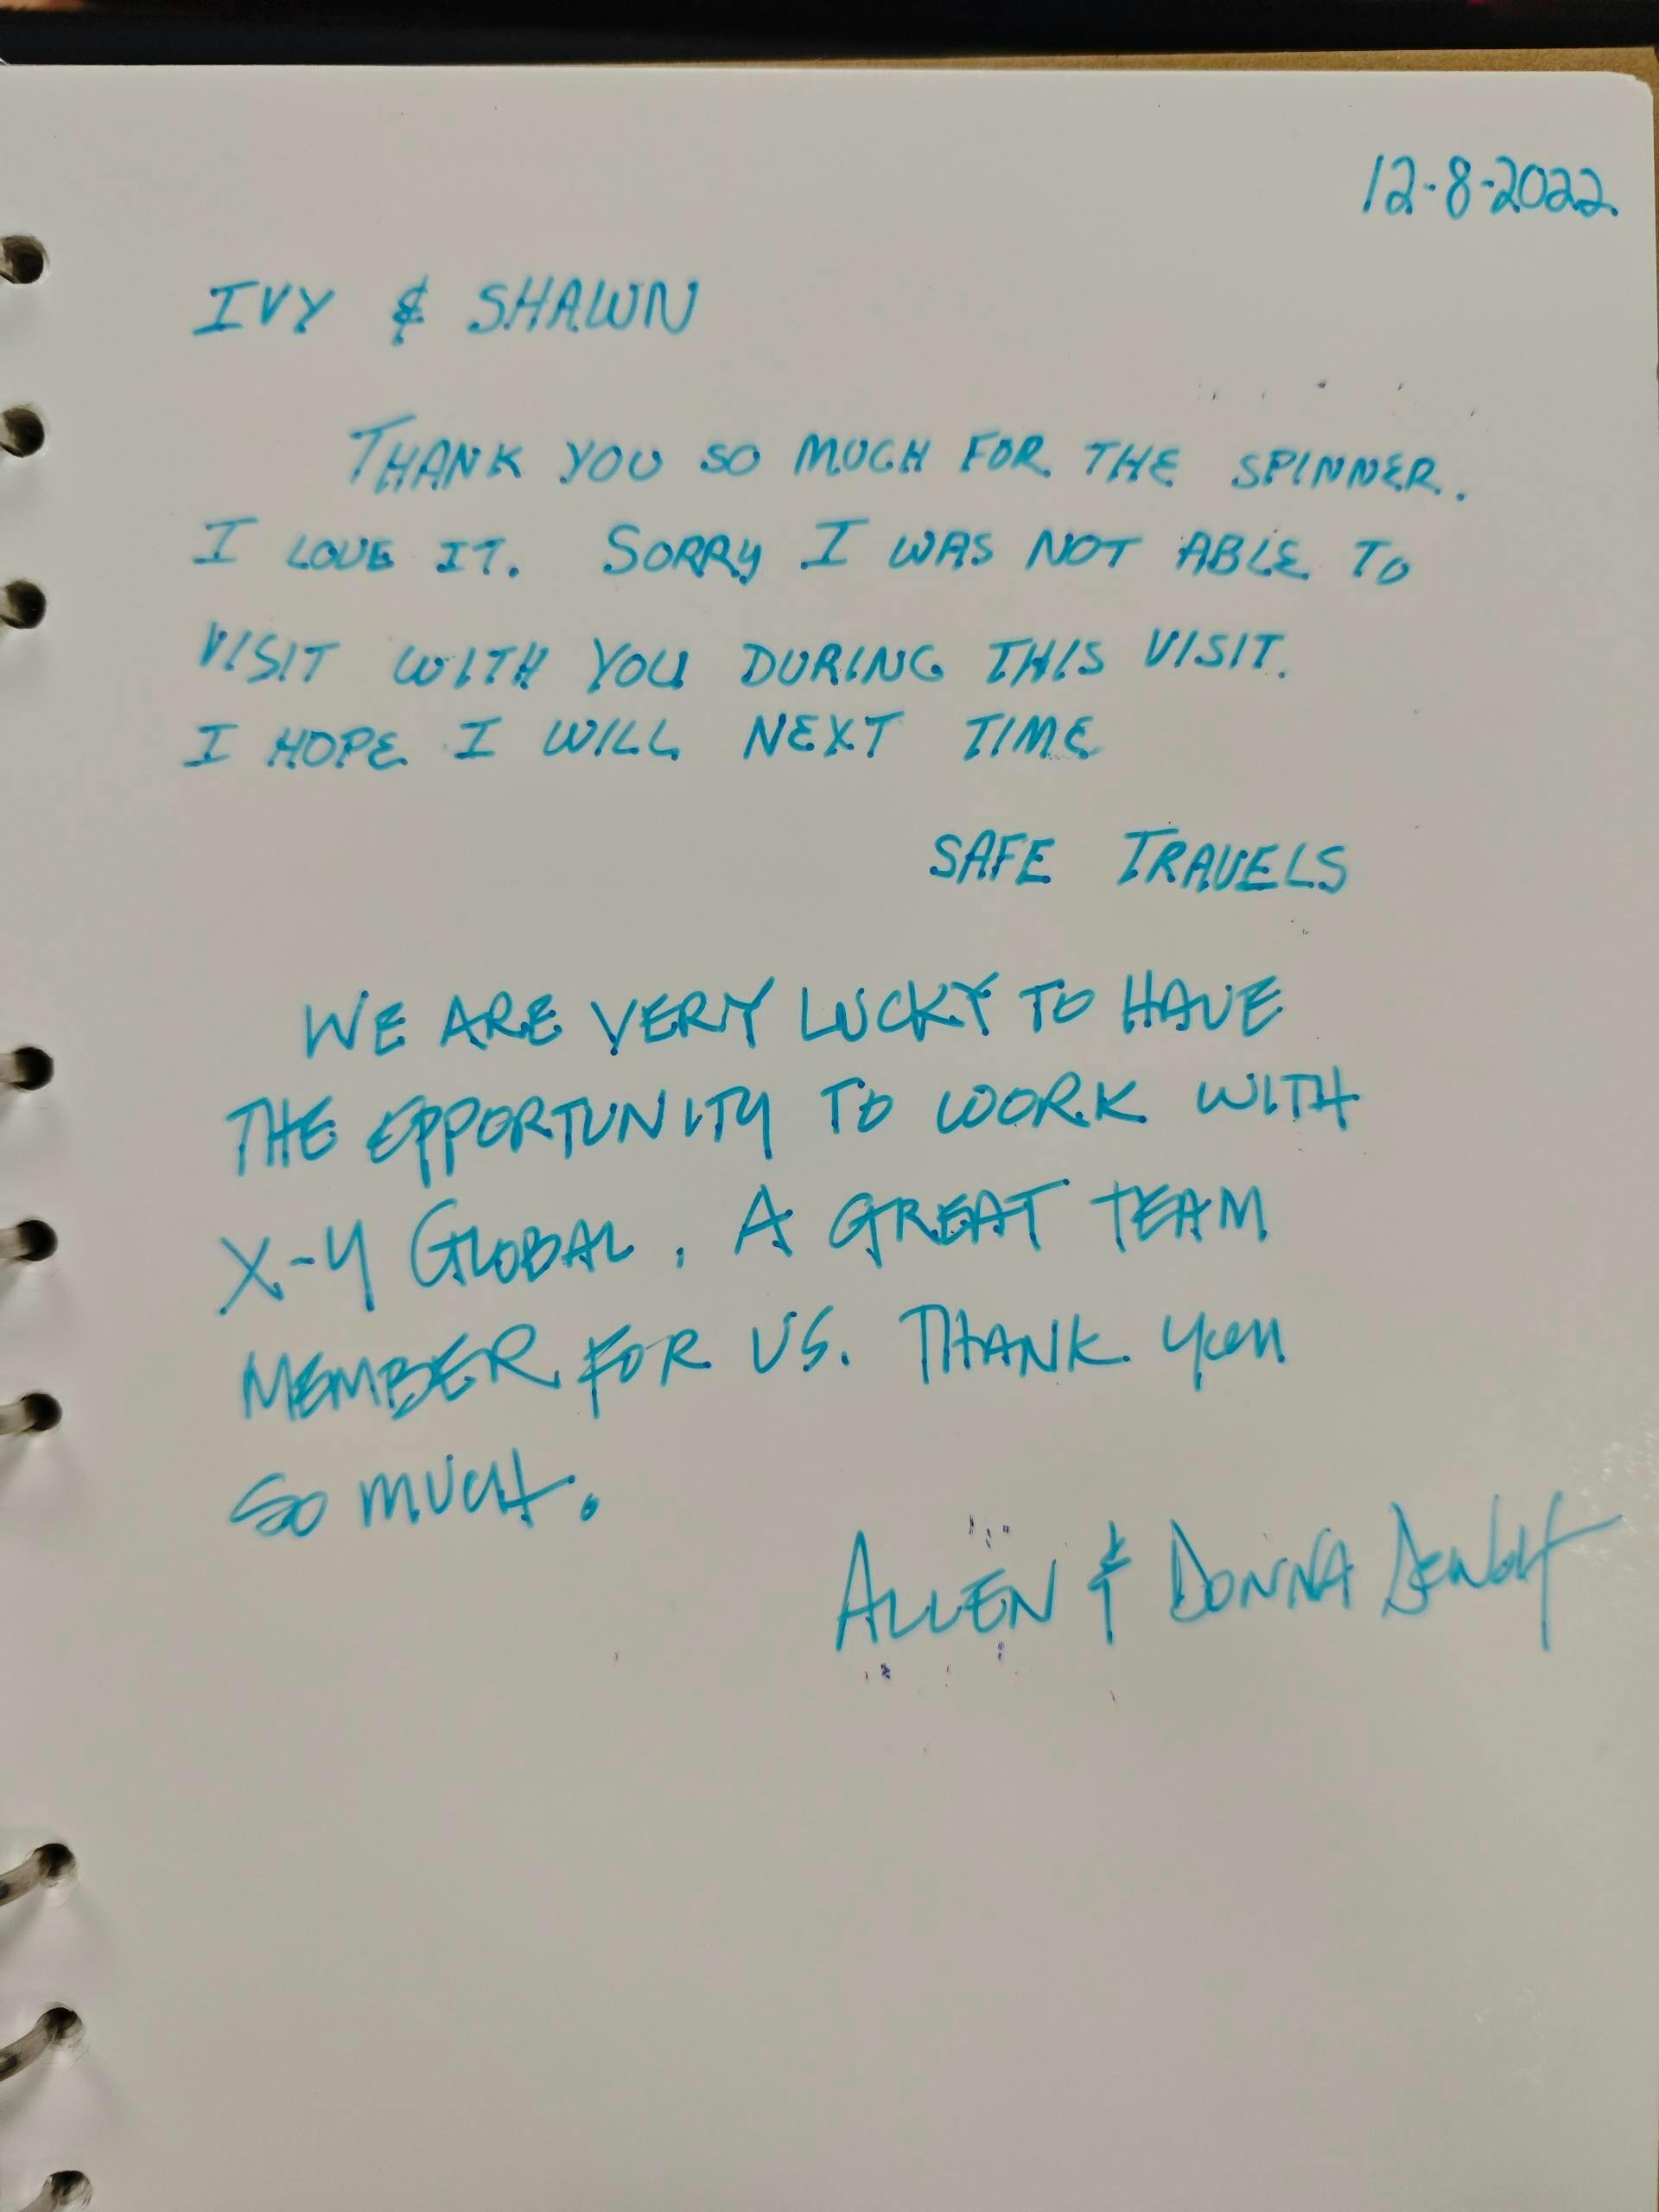 12-8-2022
IVY & SHAWN
THANK YOU SO MUCH FOR THE SPINNER.
I LOVE IT. SORRY I WAS NOT ABLE TO
VISIT WITH YOU DURING THIS VISIT.
I HOPE I WILL NEXT TIME
SAFE TRAVELS
WE ARE VERY LUCKY TO HAVE
THE OPPORTUNITY TO WORK WITH
X-Y GLOBAL. A GREAT TEAM
MEMBER FOR US. THANK YOU
SO MUCH.
ALLEN & DONNA